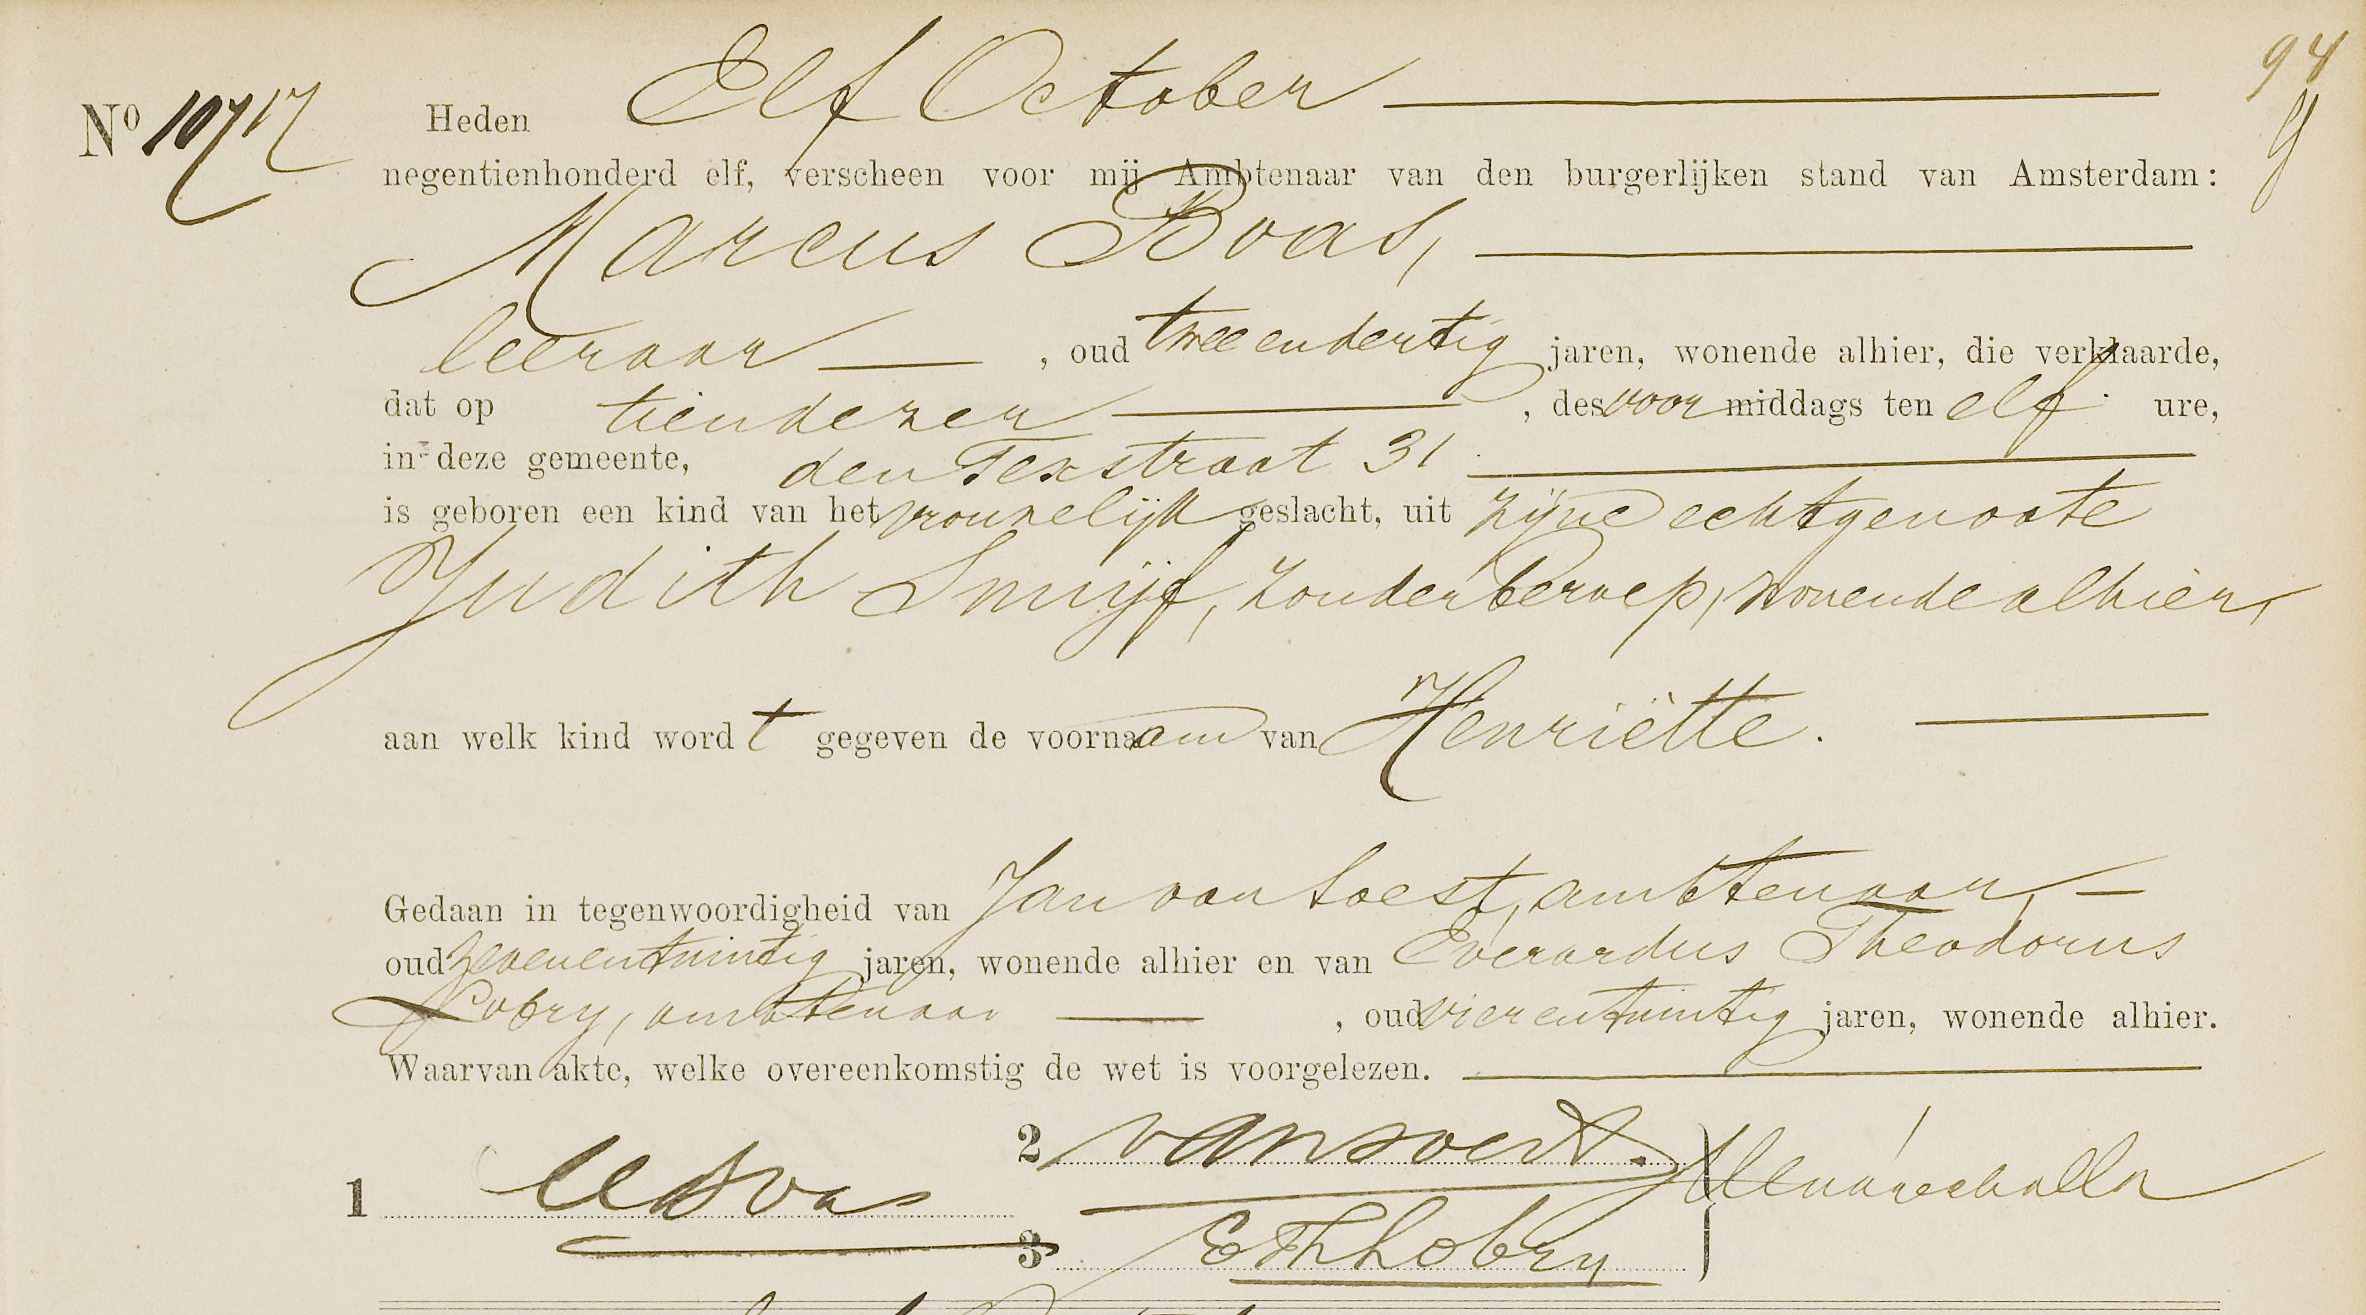 94
g
Nº 10717 Heden Elf October
negentienhonderd elf, verscheen voor mij Ambtenaar van den burgerlijken stand van Amsterdam:
Marcus Boas,
leeraar , oud twee en dertig jaren, wonende alhier, die verklaarde,
dat op tiendezer , des voor middags ten elf ure,
in deze gemeente, den Texstraat 31
is geboren een kind van het vrouwelijk geslacht, uit zijne echtgenoote
Judith Smijf, zonder beroep, wonende alhier,
aan welk kind wordt gegeven de voornaam van Henriëtte.
Gedaan in tegenwoordigheid van Jan van Soest, ambtenaar,
oud zevenentwintig jaren, wonende alhier en van Everardus Theodorus
Lobry, ambtenaar , oud vierentwintig jaren, wonende alhier.
Waarvan akte, welke overeenkomstig de wet is voorgelezen.
1 MBoas
2 van Soest.
3 EThLobry